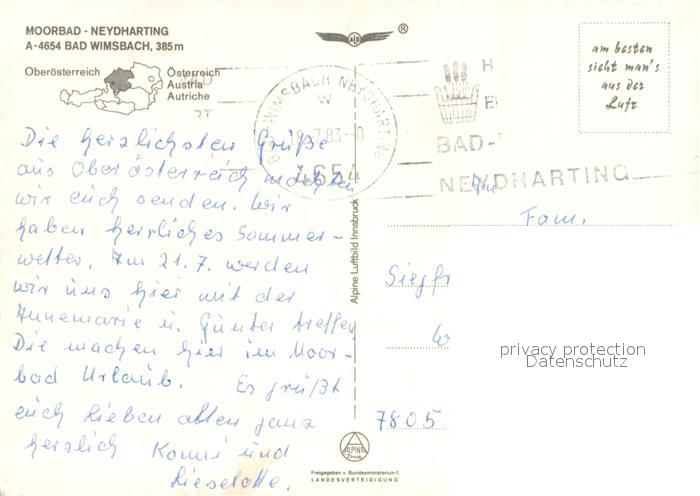 MOORBAD - NEYDHARTING
A-4654 BAD WIMSBACH, 385 m
®
Oberösterreich
Österreich
Austria
Autriche
am besten
sieht man's
aus der
Luft
BAD WIMSBACH NEYDHARTING
7.83-
4654
BAD-
NEYDHARTING
Die herzlichsten Grüße
aus Oberösterreich möchten
wir euch senden. Wir
haben herrliches Sommer-
wetter. Am 21.7. werden
wir uns hier mit der
Annemarie u. Günter treffen
Die machen hier im Moor-
bad Urlaub. Es grüßt
euch lieben allen ganz
herzlich Konni und
Lieselotte.
Alpine Luftbild Innsbruck
An
Fam.
Siegfr
W
7805
privacy protection
Datenschutz
ALPINA
Druck
Freigegeben v. Bundesministerium f.
LANDESVERTEIDIGUNG